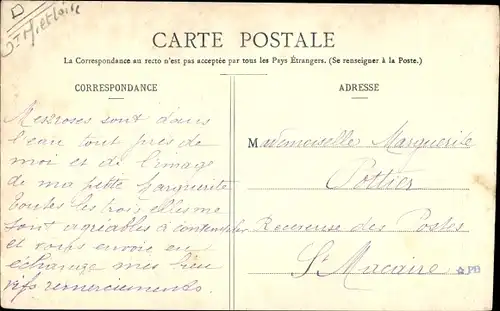 D
CARTE POSTALE
La Correspondance au recto n'est pas acceptée par tous les Pays Étrangers. (Se renseigner à la Poste.)
CORRESPONDANCE
Mes roses sont dans
l'eau tout près de
moi et de l'image
de ma petite Marguerite
toutes les trois elles me
sont agréables à contempler
et vous envoie en
échange mes bien
vifs remerciements.
ADRESSE
Mademoiselle Marguerite
Pottier
Receveuse des Postes
St Macaire
PB